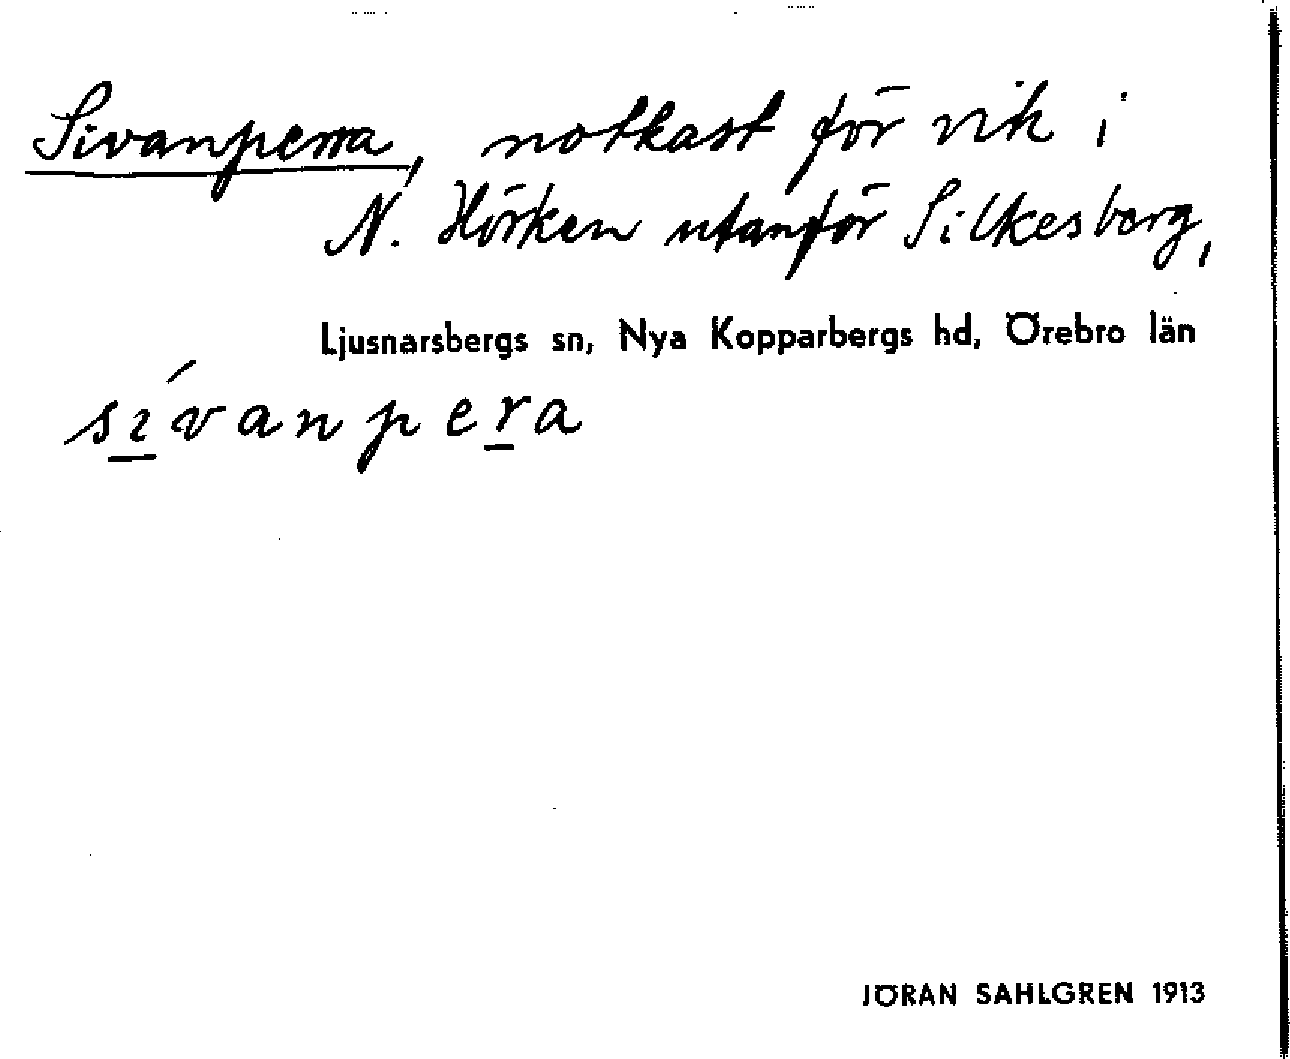 Sivanperra, notkast för vik i
N. Hörken utanför Silkesberg,
Ljusnarsbergs sn, Nya Kopparbergs hd, Örebro län
sı̲́vanper̲a
JÖRAN SAHLGREN 1913